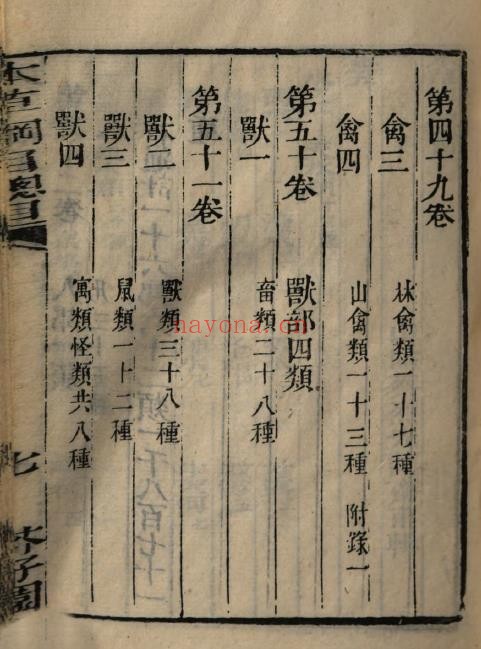 第四十九卷
禽三 林禽類一十七種
禽四 山禽類一十三種 附錄一
第五十卷 獸部四類
獸一 畜類二十八種
第五十一卷
獸二 獸類三十八種
獸三 鼠類一十二種
獸四 寓類怪類共八種
本草綱目總目 七 芥子園
nayona.cn